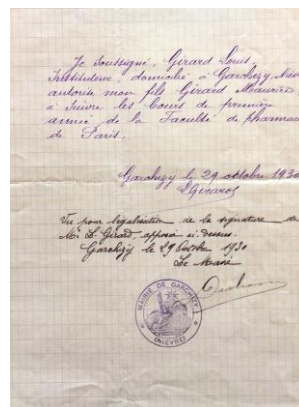 Je soussigné, Girard Louis,
Instituteur, domicilié à Garchizy, Nièv
autorise mon fils Girard Maurice
à suivre les Cours de première
année de la Faculté de pharma
de Paris.
Garchizy le 29 octobre 1930
LGirard
Vu pour légalisation de la signature de
M. L. Girard apposée ci-dessus.
Garchizy le 29 Octobre 1930
Le Maire
MAIRIE DE GARCHIZY
(NIÈVRE)